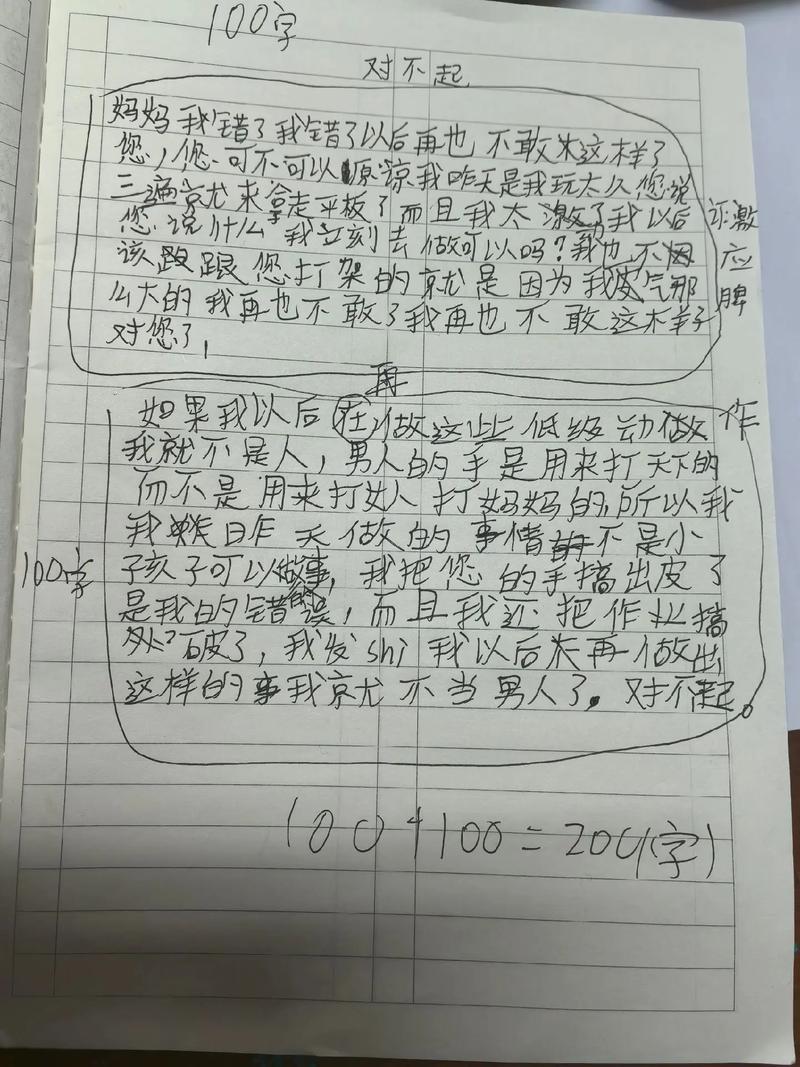 100字
对不起
妈妈我错了我错了以后再也不敢这样了
您,您可不可以原谅我昨天是我玩太久您说
三遍就来拿走平板了而且我太激了我以后
您说什么我立刻去做可以吗?我也不
该跟您打架的就是因为我皮气那
么大的我再也不敢了我再也不敢这样子
对您了,
激
应
脾
再
如果我以后在做这些低级动做 作
我就不是人,男人的手是用来打天下的
而不是用来打女人打妈妈的,所以我
我昨天做的事情不是小
100字
孩子可以做事,我把您的手搞出皮了
是我的错误,而且我还把作业搞
破了,我发shi我以后再做出
这样的事我就不当男人了。对不起。
100+100=200(字)